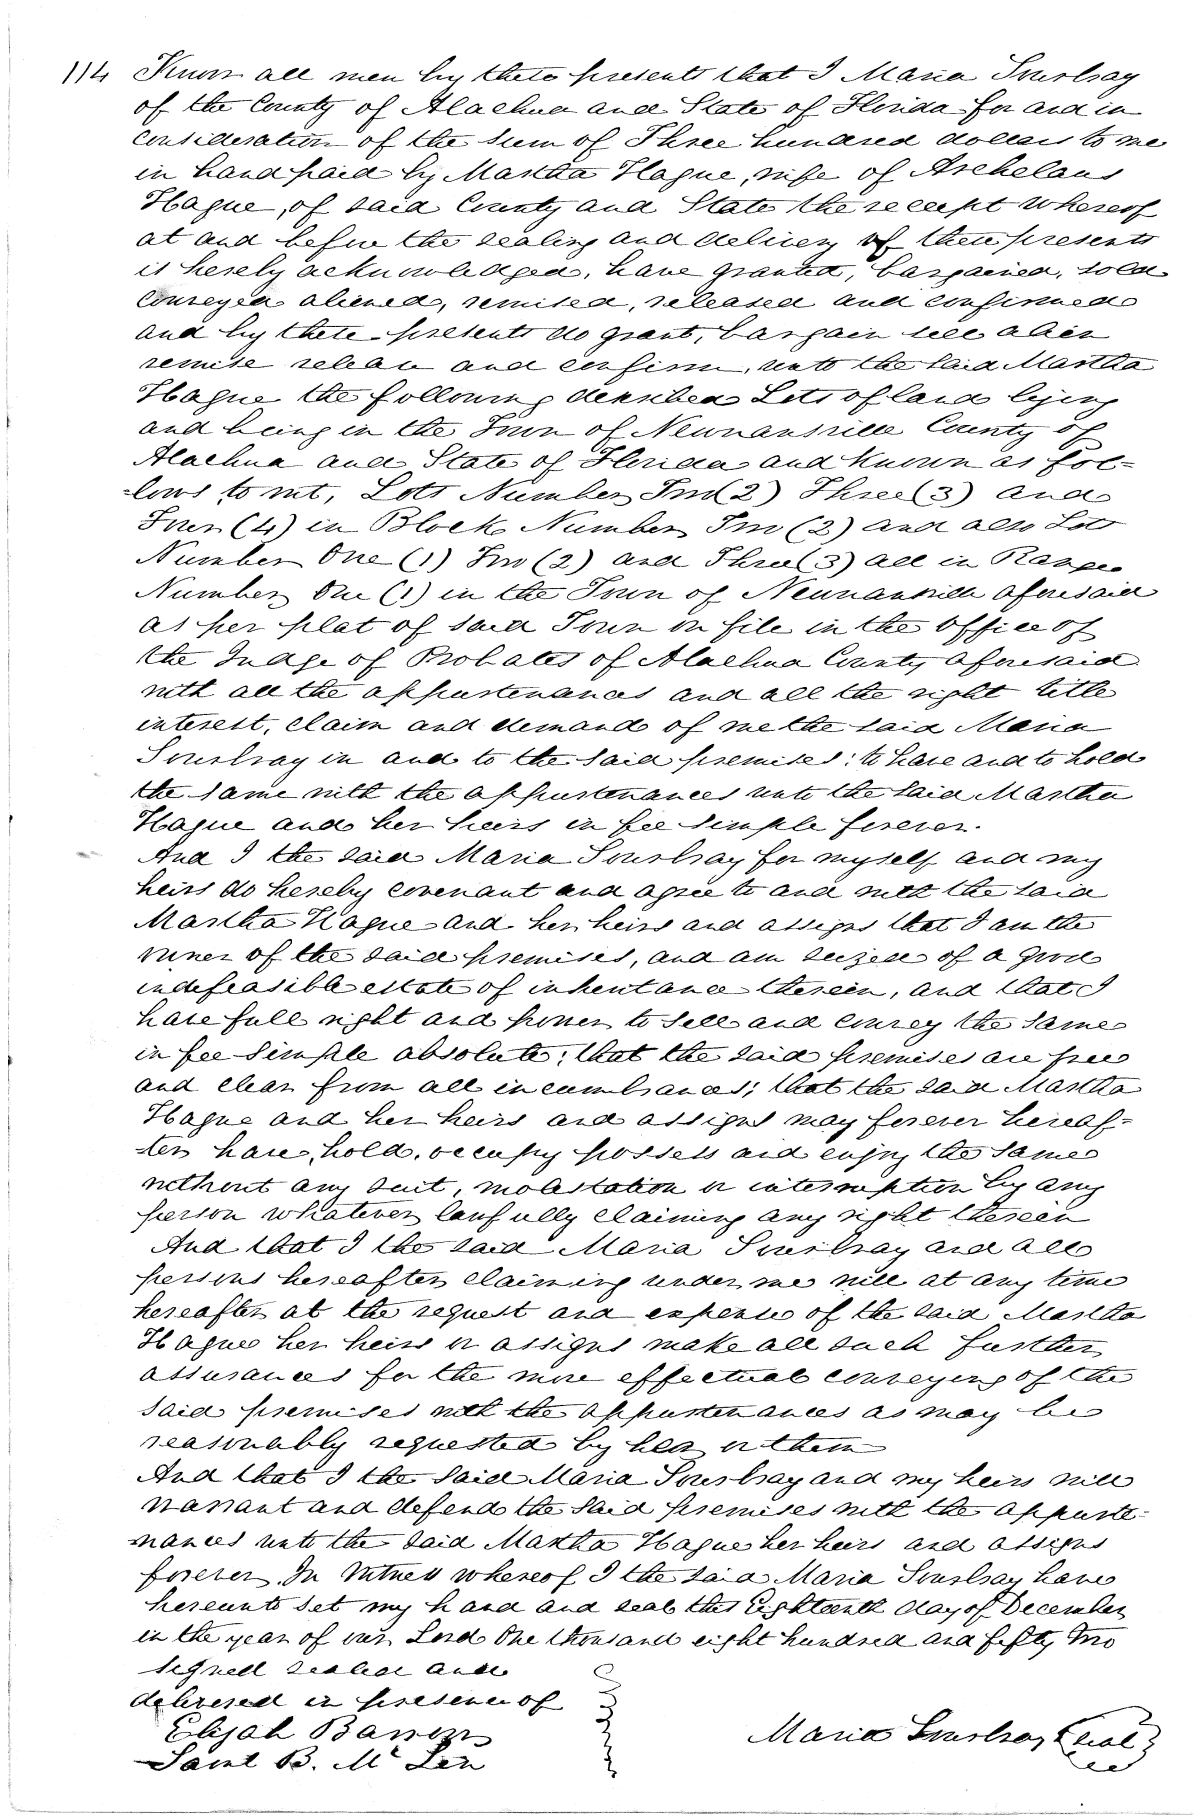 114 Know all men by these presents that I Maria Sourbray
of the County of Alachua and State of Florida for and in
consideration of the sum of Three hundred dollars to me
in hand paid by Martha Hague, wife of Archelaus
Hague, of said County and State the receipt whereof
at and before the sealing and delivery of these presents
is hereby acknowledged, have granted, bargained, sold
conveyed aliened, remised, released and confirmed
and by these presents do grant, bargain sell alien
remise release and confirm, unto the said Martha
Hague the following described Lots of land lying
and being in the Town of Newnansville County of
Alachua and State of Florida and known as fol-
lows to wit, Lots Number Two (2) Three (3) and
Four (4) in Block Number Two (2) and also Lots
Number One (1) Two (2) and Three (3) all in Range
Number One (1) in the Town of Newnansville aforesaid
as per plat of said Town on file in the office of
the Judge of Probates of Alachua County aforesaid
with all the appurtenances and all the right title
interest, claim and demand of me the said Maria
Sourbray in and to the said premises: to have and to hold
the same with the appurtenances unto the said Martha
Hague and her heirs in fee simple forever.
And I the said Maria Sourbray for myself and my
heirs do hereby covenant and agree to and with the said
Martha Hague and her heirs and assigns that I am the
owner of the said premises, and am seized of a good
indefeasible estate of inheritance therein, and that I
have full right and power to sell and convey the same
in fee simple absolute; that the said premises are free
and clear from all incumbrances; that the said Martha
Hague and her heirs and assigns may forever hereaf-
ter have, hold, occupy possess and enjoy the same
without any suit, molestation or interruption by any
person whatever lawfully claiming any right therein
And that I the said Maria Sourbray and all
persons hereafter claiming under me will at any time
hereafter at the request and expense of the said Martha
Hague her heirs or assigns make all such further
assurances for the more effectual conveying of the
said premises with the appurtenances as may be
reasonably requested by her or them
And that I the said Maria Sourbray and my heirs will
warrant and defend the said premises with the appurte-
nances unto the said Martha Hague her heirs and assigns
forever. In Witness whereof I the said Maria Sourbray have
hereunto set my hand and seal this Eighteenth day of December
in the year of our Lord One thousand eight hundred and fifty two
Signed sealed and
delivered in presence of
Elijah Barron
Saml B. Mc Lin
Maria Sourbray Seal